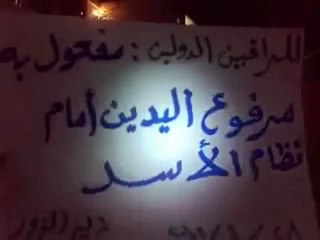 للمراقبين الدولين : مفعول به
مرفوع اليدين أمام
نظام الأسد
دير الزور